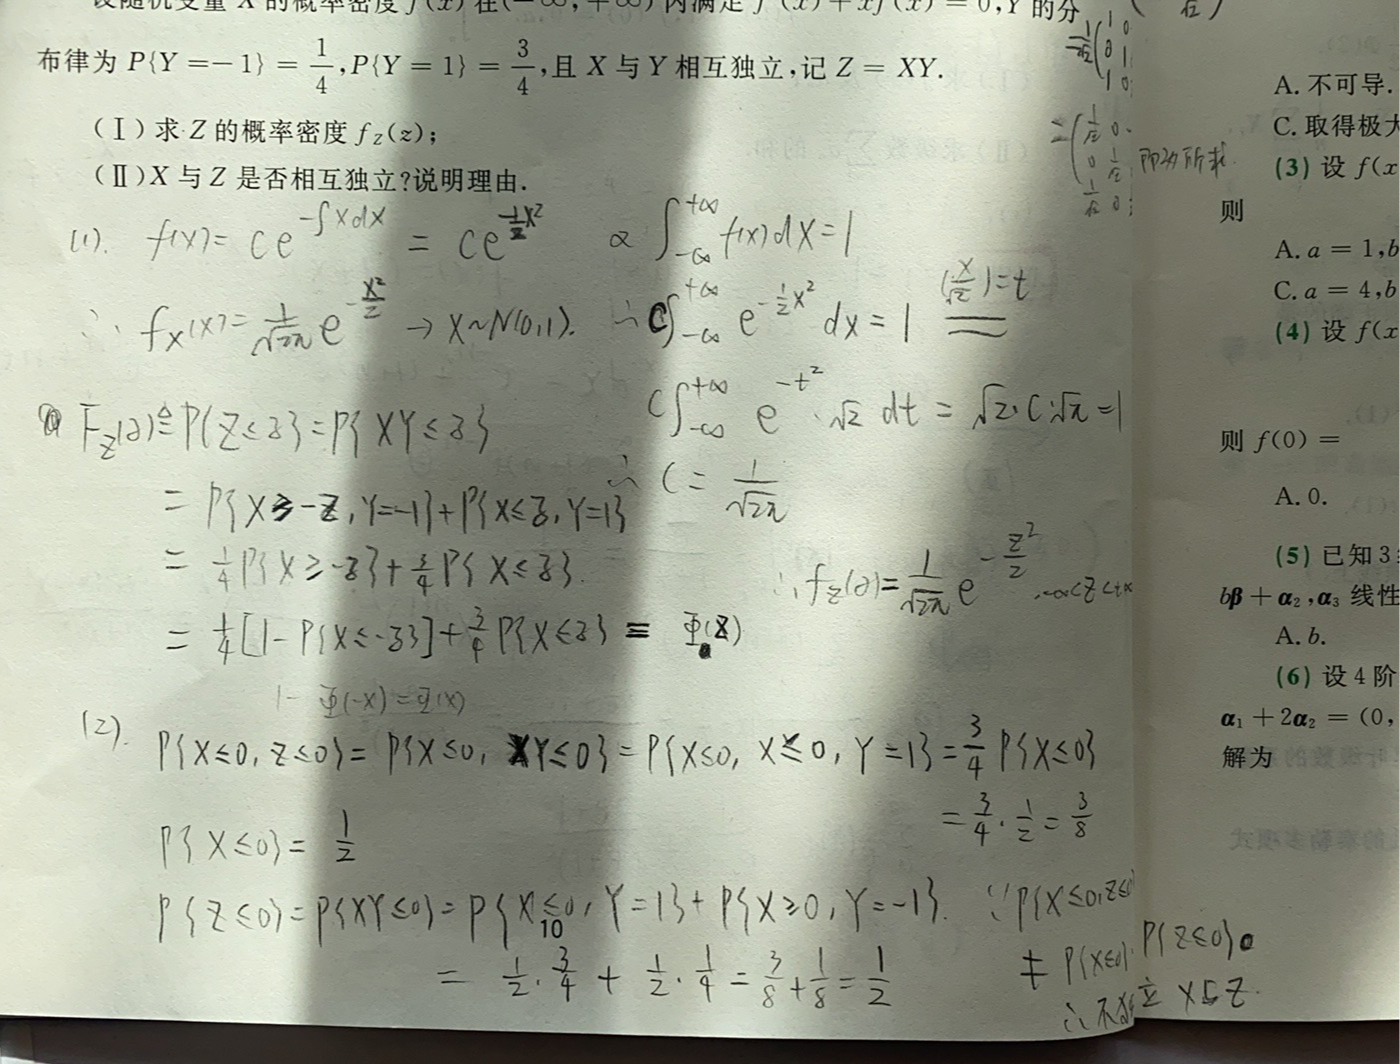 设随机变量 X 的概率密度 f(x) 在(-∞,+∞) 内满足 f'(x)+xf(x)=0,Y 的分
布律为 P{Y=-1}=1/4,P{Y=1}=3/4,且 X 与 Y 相互独立,记 Z=XY.
(Ⅰ)求 Z 的概率密度 f_Z(z);
(Ⅱ)X 与 Z 是否相互独立?说明理由.
(1). f(x)=ce^{-∫xdx}=ce^{-1/2 x²} ∝ ∫_{-∞}^{+∞} f(x)dx=1
∴ f_X(x)=1/√2π e^{-x²/2} → X~N(0,1). ∴ C∫_{-∞}^{+∞} e^{-1/2 x²} dx=1 (x/√2)=t
C∫_{-∞}^{+∞} e^{-t²}·√2 dt=√2·C·√π=1
∴ C=1/√2π
F_Z(z)≜P{Z≤z}=P{XY≤z}
=P{X≥-z,Y=-1}+P{X≤z,Y=1}
=1/4 P{X≥-z}+3/4 P{X≤z}.
=1/4[1-P{X≤-z}]+3/4 P{X≤z}=Φ(z)
∴ f_Z(z)=1/√2π e^{-z²/2} ,-∞<z<+∞
1-Φ(-x)=Φ(x)
(2). P{X≤0, Z≤0}=P{X≤0, XY≤0}=P{X≤0, X≤0, Y=1}=3/4 P{X≤0}
=3/4·1/2=3/8
P{X≤0}=1/2
P{Z≤0}=P{XY≤0}=P{X≤0, Y=1}+P{X≥0, Y=-1}. ∵P{X≤0,Z≤0}
10
=1/2·3/4+1/2·1/4=3/8+1/8=1/2
≠P{X≤0}·P{Z≤0}
∴不独立 X与Z.
即为所求.
A. 不可导.
C. 取得极大
(3) 设 f(x
则
A. a = 1,b
C. a = 4,b
(4) 设 f(x
则 f(0) =
A. 0.
(5) 已知 3
bβ + α₂,α₃ 线性
A. b.
(6) 设 4 阶
α₁ + 2α₂ = (0,
解为